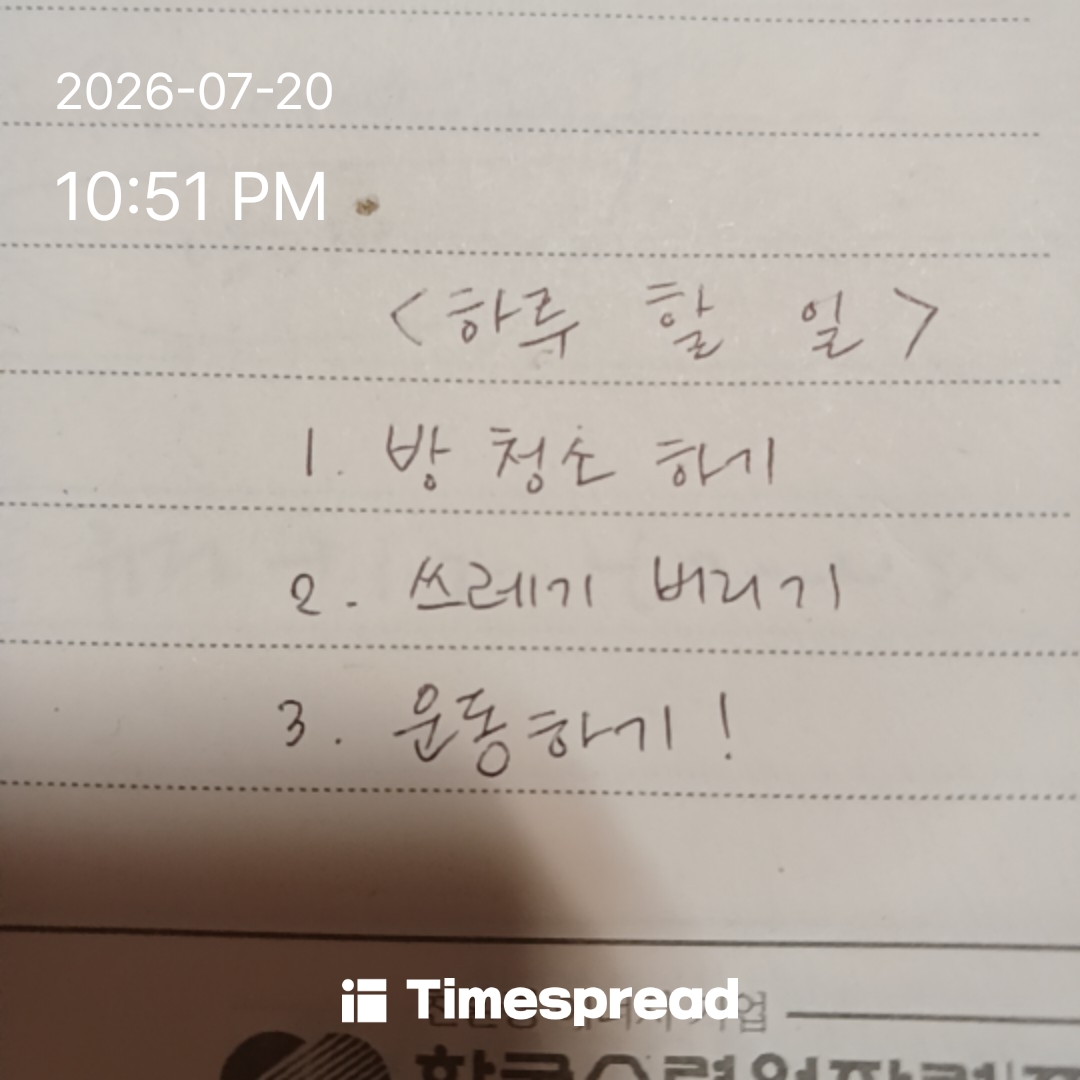 2026-07-20
10:51 PM
<하루 할 일>
1. 방 청소 하기
2. 쓰레기 버리기
3. 운동하기!
Timespread